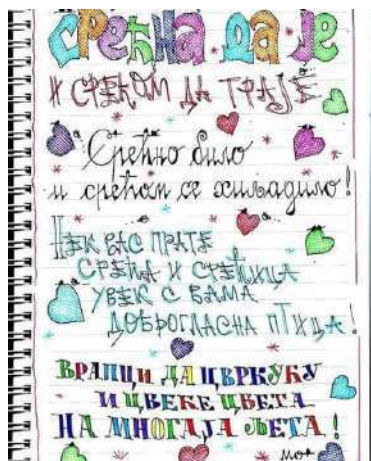 СРЕЋНА ДА ЈЕ
И СРЕЋОМ ДА ТРАЈЕ
Срећно било
и срећом се хиљадило!
НЕК ВАС ПРАТЕ
СРЕЋА И СРЕЋИЦА
УВЕК С ВАМА
ДОБРОГЛАСНА ПТИЦА!
ВРАПЦИ ДА ЦВРКУЋУ
И ЦВЕЋЕ ЦВЕТА
НА МНОГАЈА ЉЕТА!